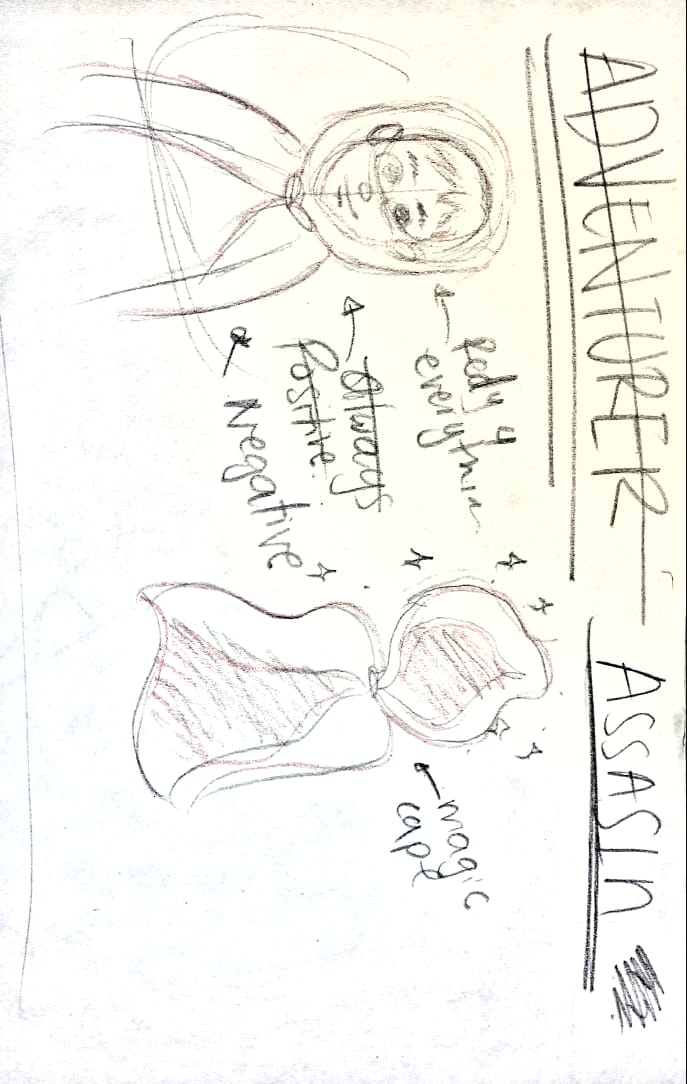 ADVENTURER
ASSASIN
Redy 4
everythin
Always
Positive.
Negative
magic
cape